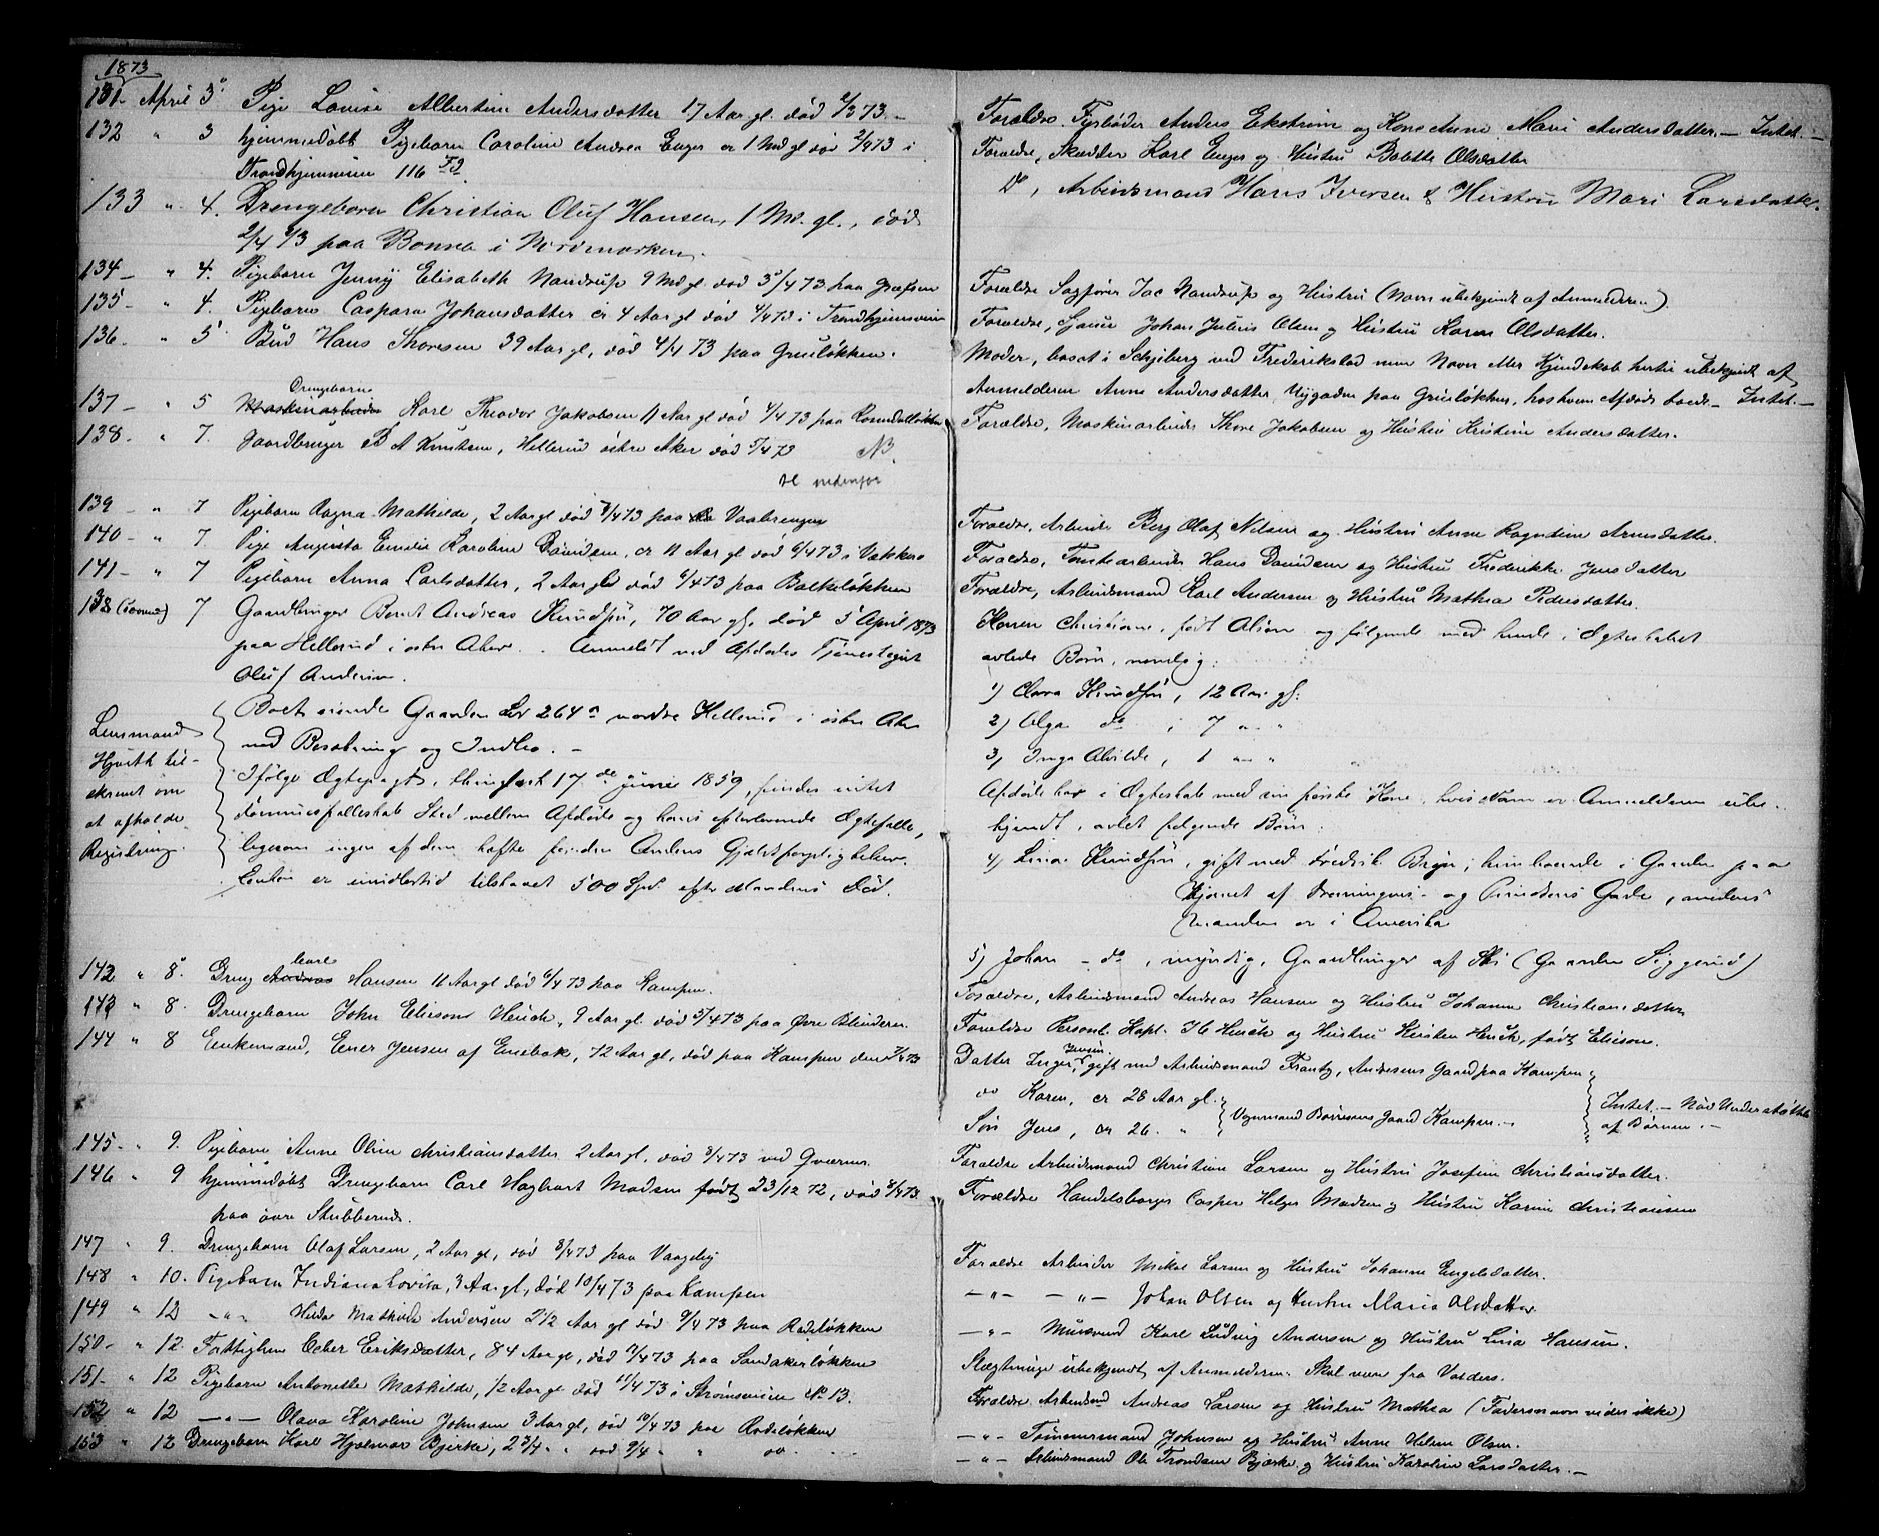 1873
131 - April 3 Pige Louise Albertine Andersdatter 17 Aar gl. død 1/3 73. -
Forældre. Fyrbøder Anders Ekstrøm og Kone Anne Mari Andersdatter. - Intet. -
132 " 3 hjemmedøbt Pigebarn Caroline Andrea Enger er 1 Md gl død 2/4 73 i
Forældre, Skrædder Karl Enger og Hustru Bolette Olsdatter
Trondhjemsveien 116
133 " 4. Drengebarn Christian Oluf Hansen, 1 Md. gl., død
Do, Arbeidsmand Hans Iversen & Hustru Mari Larsdatter.
2/4 73 paa Bonna i Nordmarken.
134 - " 4. Pigebarn Jenny Elisabeth Nandrup 9 Md gl død 3/4 73 paa Grefsen
Forældre Sagfører Jac Nandrup og Hustru (Navn ubekjendt af Anmelderen).
135 - " 4. Pigebarn Caspara Johansdatter er 4 Aar gl død 4/4 73 i Trondhjemsveien
Forældre, Johan Julius Olsen og Hustru Karen Olsdatter.
136 - " 5 Hans Thoresen 39 Aar gl, død 4/4 73 paa Grusløkken.
Moder, bosat i Schjeberg ved Frederikstad men Navn eller Kjendskab hertil ubekjendt af
Anmelderen Anne Andersdatter Nygaden paa Grusløkken, hos hvem Afdøde boede - Intet. -
Drengebarn
137 - " 5 Maskinarbeider Karl Theodor Jakobsen 11 Aar gl død 4/4 73 paa Rosendalløkken
Forældre, Maskinarbeider Thore Jakobsen og Hustru Kristine Andersdatter.
138 - " 7. Gaardbruger B A Knutsen, Hellerud østre Aker død 5/4 73 NB.
se nedenfor
139 - " 7 Pigebarn Ragna Mathilde, 2 Aar gl død 7/4 73 paa Vaalerengen
Forældre, Arbeider Berg Olaf Nilsen og Hustru Anne Ragndine Arnesdatter.
140 - " 7. Pige Augusta Emilie Karoline Davidsen, er 11 Aar gl død 6/4 73 i Vækkerø
Forældre, Tomtearbeider Hans Davidsen og Hustru Frederikke Jensdatter
141 - " 7 Pigebarn Anna Carlsdatter, 2 Aar gl død 6/4 73 paa Balkeløkken
Forældre, Arbeidsmand Karl Andersen og Hustru Mathea Pedersdatter.
138 7 Gaardbruger Bernt Andreas Knudsen, 70 Aar gl. død 5 April 1873
Konen Christiane, født Olsen og følgende med hende i Ægteskabet
paa Hellerud i østre Aker. Anmeldt ved Afdødes Tjenestegut
avlede Børn, nemlig:
Oluf Andersen.
1) Clara Knudsen, 12 Aar gl.
Lensmand
Hjorth til-
skrevet om
at afholde
Registrering.
Boet eiende Gaarden Lv 264 a nordre Hellerud i østre Aker
2) Olga do , 7 " "
med Besætning og Indbo. -
3) Inga Alvilde, 1 " "
Ifølge Ægtepagt, thinglæst 17de Junii 1859, finder intet
Afdøde har i Ægteskab med sin første Kone, hvis Navn er Anmelderen ube-
formuesfælleskab Sted mellem Afdøde og hans efterlevende Ægtefælle,
kjendt, avlet følgende Børn:
ligesom ingen af dem hæfte for den Andens Gjældsforpligtelser.
4) Lina Knudsen, gift med Fredrik Bryn; hun boende i Gaarden paa
Enken er imidlertid tilstaaet 500 Spd. efter Mandens Død.
Hjørnet af Dronningens- og Prindsens Gade, medens
Manden er i Amerika
5) Johan - do, myndig, Gaardbruger af Ski (Gaarden Siggerud)
Carl
142 " 8. Dreng Andreas Hansen 11 Aar gl død 6/4 73 paa Kampen.
Forældre, Arbeidsmand Andreas Hansen og Hustru Johanne Christiansdatter
143 " 8. Drengebarn John Elieson Heuch, 9 Aar gl. død 5/4 73 paa Øvre Blindern.
Forældre Kapt. Heuch og Hustru Kirsten Heuch, født Elieson.
144 " 8 Enkemand, Ener Jensen af Enebak, 72 Aar gl, død paa Kampen den 7/4 73
Jensen
Datter Inger, gift med Arbeidsmand Frantz, Andresens Gaard paa Kampen
do Karen, er 28 Aar gl.
Søn Jens, er 26. "
Vognmand Børresens Gaard Kampen. -
Intet. - Nød Understøttelse
af Børnene. -
145 - " 9. Pigebarn Anne Oline Christiansdatter 2 Aar gl. død 8/4 73 ved Qværner
Forældre Arbeidsmand Christian Larsen og Hustru Josefine Christiansdatter.
146 " 9 hjemmedøbt Drengebarn Carl Hagbart Madsen født 23/12 72, død 8/4 73
Forældre Handelsborger Casper Helger Madsen og Hustru Karine Christiansen
paa øvre Stubberud.
147 " 9. Drengebarn Olaf Larsen, 2 Aar gl, død 8/4 73 paa Vaageby
Forældre Arbeider Mikal Larsen og Hustru Johanne Engelsdatter.
148 " 10. Pigebarn Indiana Lovisa, 3 Aar gl, død 10/4 73 paa Kampen
- " - - " - Johan Olsen og Hustru Maria Olsdatter.
149 " 12 - " - Hilda Mathilde Andersen 2 1/2 Aar gl død 9/4 73 paa Rodeløkken
- " - Karl Ludvig Andersen og Hustru Lina Hansen.
150 - " 12. Fattiglem Eriksdatter, 84 Aar gl, død 11/4 73 paa Sandakerløkken
Slægtninge ubekjendt af Anmelderen. Skal være fra Valders.
151 - " 12 Pigebarn Antonette Mathilde, 1/2 Aar gl død 11/4 73 i Strømsveien No 13.
Forældre Arbeidsmd Andreas Larsen og Hustru Mathea (Fadersnavn vides ikke)
152 " 12 - " - Olava Karoline Johnsen 3 Aar gl, død 10/4 73 paa Rodeløkken
- " - Tømmermand Johnsen og Hustru Anne Helene Olsen.
153 " 12 Drengebarn Karl Hjalmar Bjerke, 2 3/4 " " død 9/4 " " do. -
- " - Arbeidsmand Ole Trondsen Bjerke og Hustru Karoline Larsdatter. -